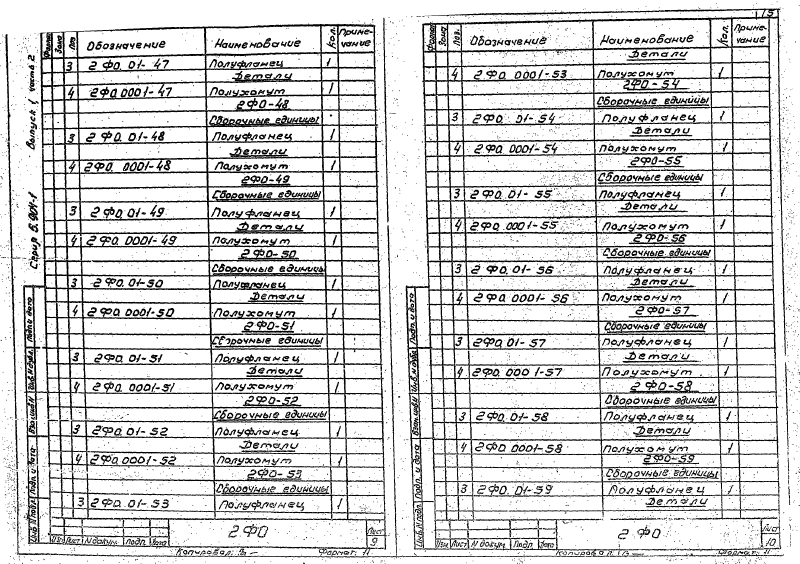 Серия 5.901-1 Выпуск 1, часть 2
Формат Зона Поз. Обозначение Наименование Кол. Примечание
3 2ФО. 01-47 Полуфланец 1
Детали
4 2ФО.0001-47 Полухомут 1
2ФО-48
Сборочные единицы
3 2ФО. 01-48 Полуфланец 1
Детали
4 2ФО. 0001-48 Полухомут 1
2ФО-49
Сборочные единицы
3 2ФО. 01-49 Полуфланец 1
Детали
4 2ФО. 0001-49 Полухомут 1
2ФО-50
Сборочные единицы
3 2ФО. 01-50 Полуфланец 1
Детали
4 2ФО. 0001-50 Полухомут 1
2ФО-51
Сборочные единицы
3 2ФО. 01-51 Полуфланец 1
Детали
4 2ФО. 0001-51 Полухомут 1
2ФО-52
Сборочные единицы
3 2ФО. 01-52 Полуфланец 1
Детали
4 2ФО.0001-52 Полухомут 1
2ФО-53
Сборочные единицы
3 2ФО. 01-53 Полуфланец 1
Инв.№подл. Подп. и дата Взам.инв.№ Инв.№дубл. Подп. и дата
Изм Лист №докум. Подп. Дата
2ФО
Лист
9
Копировал: Формат: 11
15
Формат Зона Поз. Обозначение Наименование Кол. Примечание
Детали
4 2ФО. 0001-53 Полухомут 1
2ФО-54
Сборочные единицы
3 2ФО. 01-54 Полуфланец 1
Детали
4 2ФО. 0001-54 Полухомут 1
2ФО-55
Сборочные единицы
3 2ФО. 01-55 Полуфланец 1
Детали
4 2ФО. 0001-55 Полухомут 1
2ФО-56
Сборочные единицы
3 2ФО. 01-56 Полуфланец 1
Детали
4 2ФО. 0001-56 Полухомут 1
2ФО-57
Сборочные единицы
3 2ФО. 01-57 Полуфланец 1
Детали
4 2ФО. 0001-57 Полухомут 1
2ФО-58
Сборочные единицы
3 2ФО. 01-58 Полуфланец 1
Детали
4 2ФО. 0001-58 Полухомут 1
2ФО-59
Сборочные единицы
3 2ФО. 01-59 Полуфланец 1
Детали
Инв.№подл. Подп. и дата Взам.инв.№ Инв.№дубл. Подп. и дата
Изм Лист №докум. Подп. Дата
2ФО
Лист
10
Копировал: Формат: 11